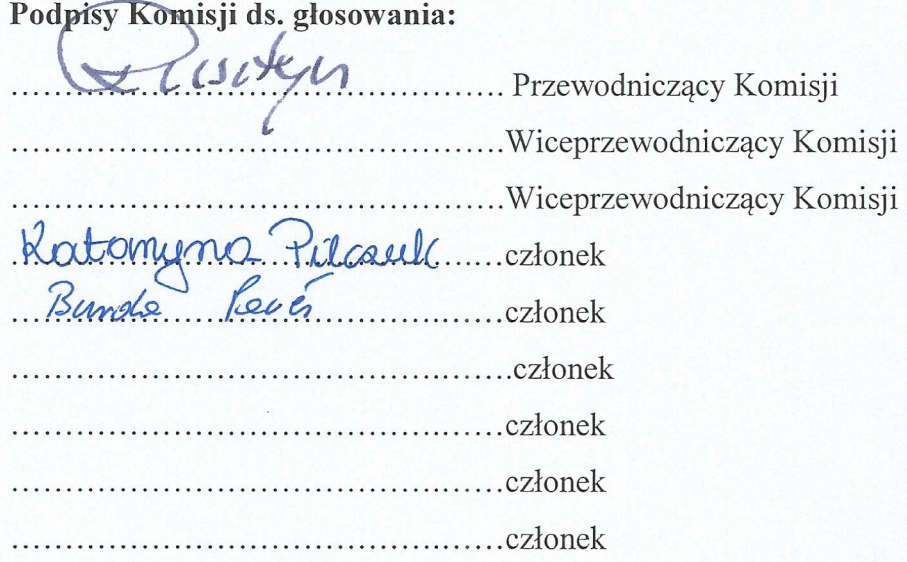 Podpisy Komisji ds. głosowania:
.................................................. Przewodniczący Komisji
..................................................Wiceprzewodniczący Komisji
..................................................Wiceprzewodniczący Komisji
Katarzyna Pilczuk.......członek
...Bunda ..................członek
..................................................członek
..................................................członek
..................................................członek
..................................................członek